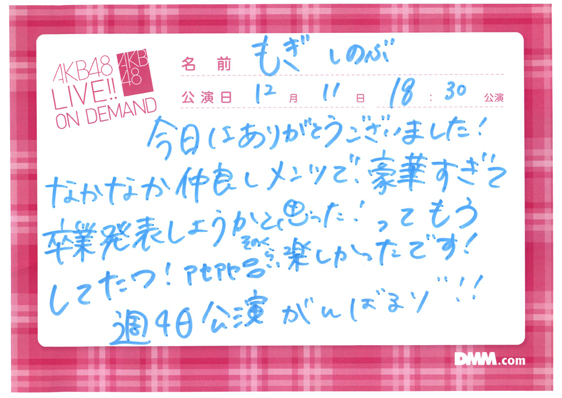 AKB48
LIVE!!
ON DEMAND
AKB
48
名前 もぎ しのぶ
公演日 12月 11日 18:30 公演
今日はありがとうございました!
なかなか仲良しメンツで、豪華すぎて
卒業発表しようかと思った!ってもう
してたっ! そのくらい楽しかったです!
週4日公演がんばるゾ!!
DMM.com